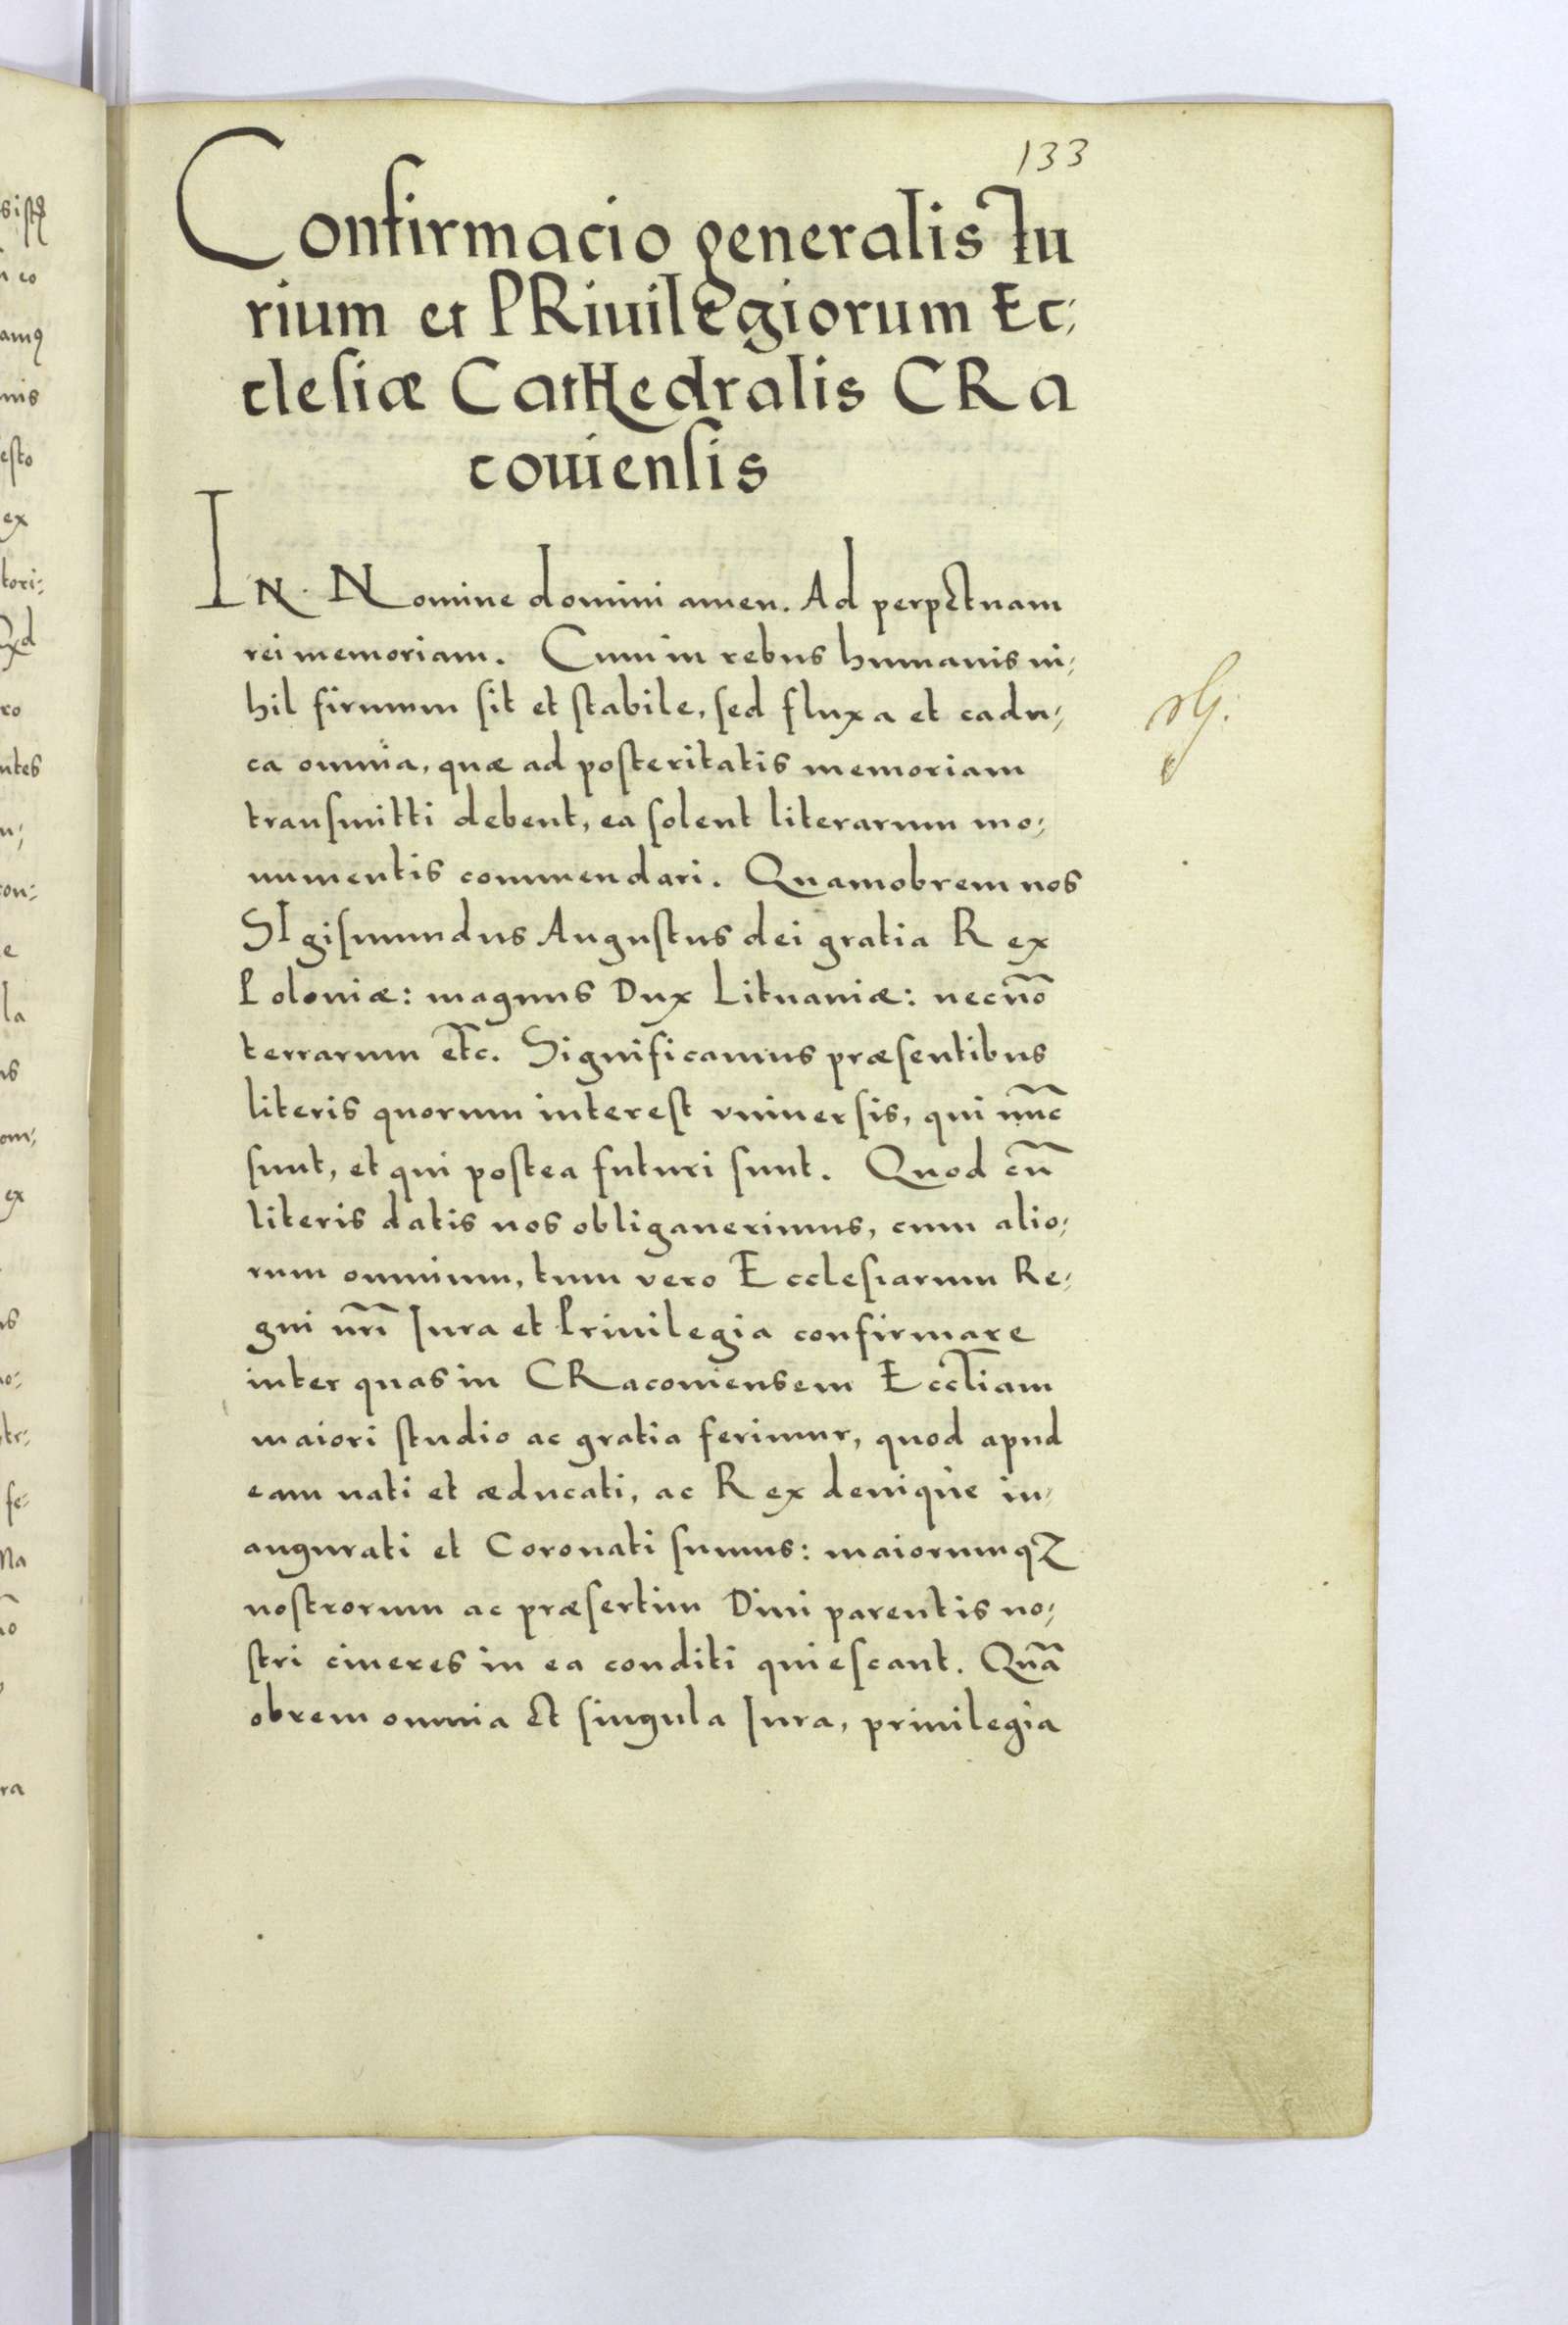 133
Confirmacio generalis Iu
rium et PRiuilegiorum Ec;
clesiæ CatHedralis CRa
couiensis
IN Nomine domini amen. Ad perpetuam
rei memoriam. Cum in rebus humanis ni;
hil firmum sit et stabile, sed fluxa et cadu;
ca omnia, quæ ad posteritatis memoriam
transmitti debent, ea solent literarum mo;
numentis commendari. Quamobrem nos
SIgismundus Augustus dei gratia Rex
Poloniæ: magnus Dux Lituaniæ: necnō
terrarum etc̄. Significamus præsentibus
literis quorum interest vniuersis, qui nūc
sunt, et qui postea futuri sunt. Quod cū
literis datis nos obligauerimus, cum alio;
rum omnium, tum vero Ecclesiarum Re;
gni nr̄i Iura et Priuilegia confirmare
inter quas in CRacouiensem Eccl̄iam
maiori studio ac gratia ferimur, quod apud
eam nati et æducati, ac Rex denique in;
augurati et Coronati sumus: maiorumqꝫ
nostrorum ac præsertim Diui parentis no;
stri cineres in ea conditi quiescant. Quā
obrem omnia et singula Iura, priuilegia